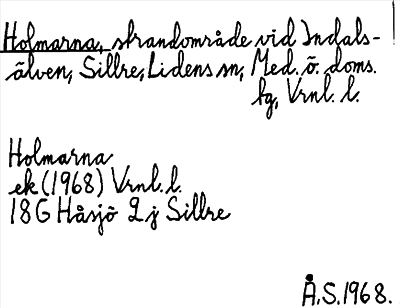 Holmarna, strandområde vid Indals-
älven, Sillre, Lidens sn, Med. ö. doms.
hg, Vrnl. l.
Holmarna
ek (1968) Vrnl. l.
18G Håsjö 2j Sillre
Å.S. 1968.